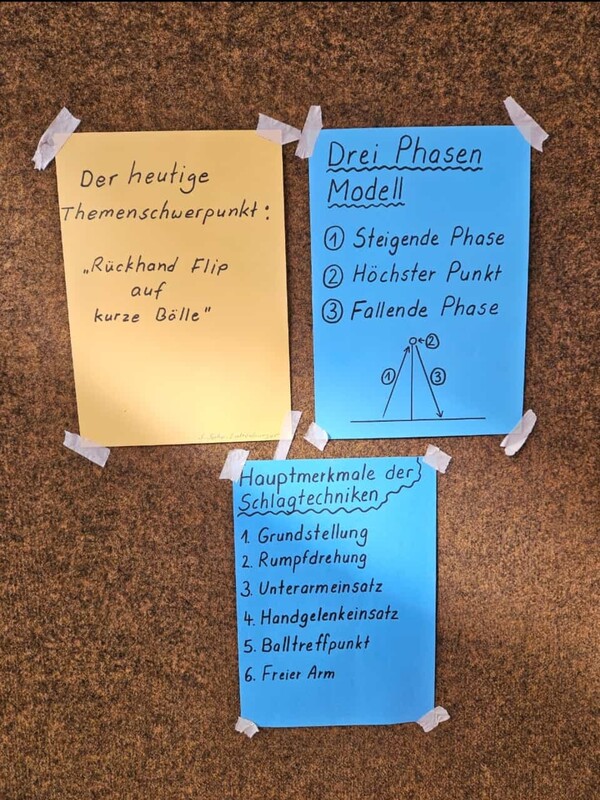 Der heutige
Themenschwerpunkt:
„Rückhand Flip
auf
kurze Bölle"
Drei Phasen
Modell
① Steigende Phase
② Höchster Punkt
③ Fallende Phase
②
① ③
Hauptmerkmale der
Schlagtechniken
1. Grundstellung
2. Rumpfdrehung
3. Unterarmeinsatz
4. Handgelenkeinsatz
5. Balltreffpunkt
6. Freier Arm